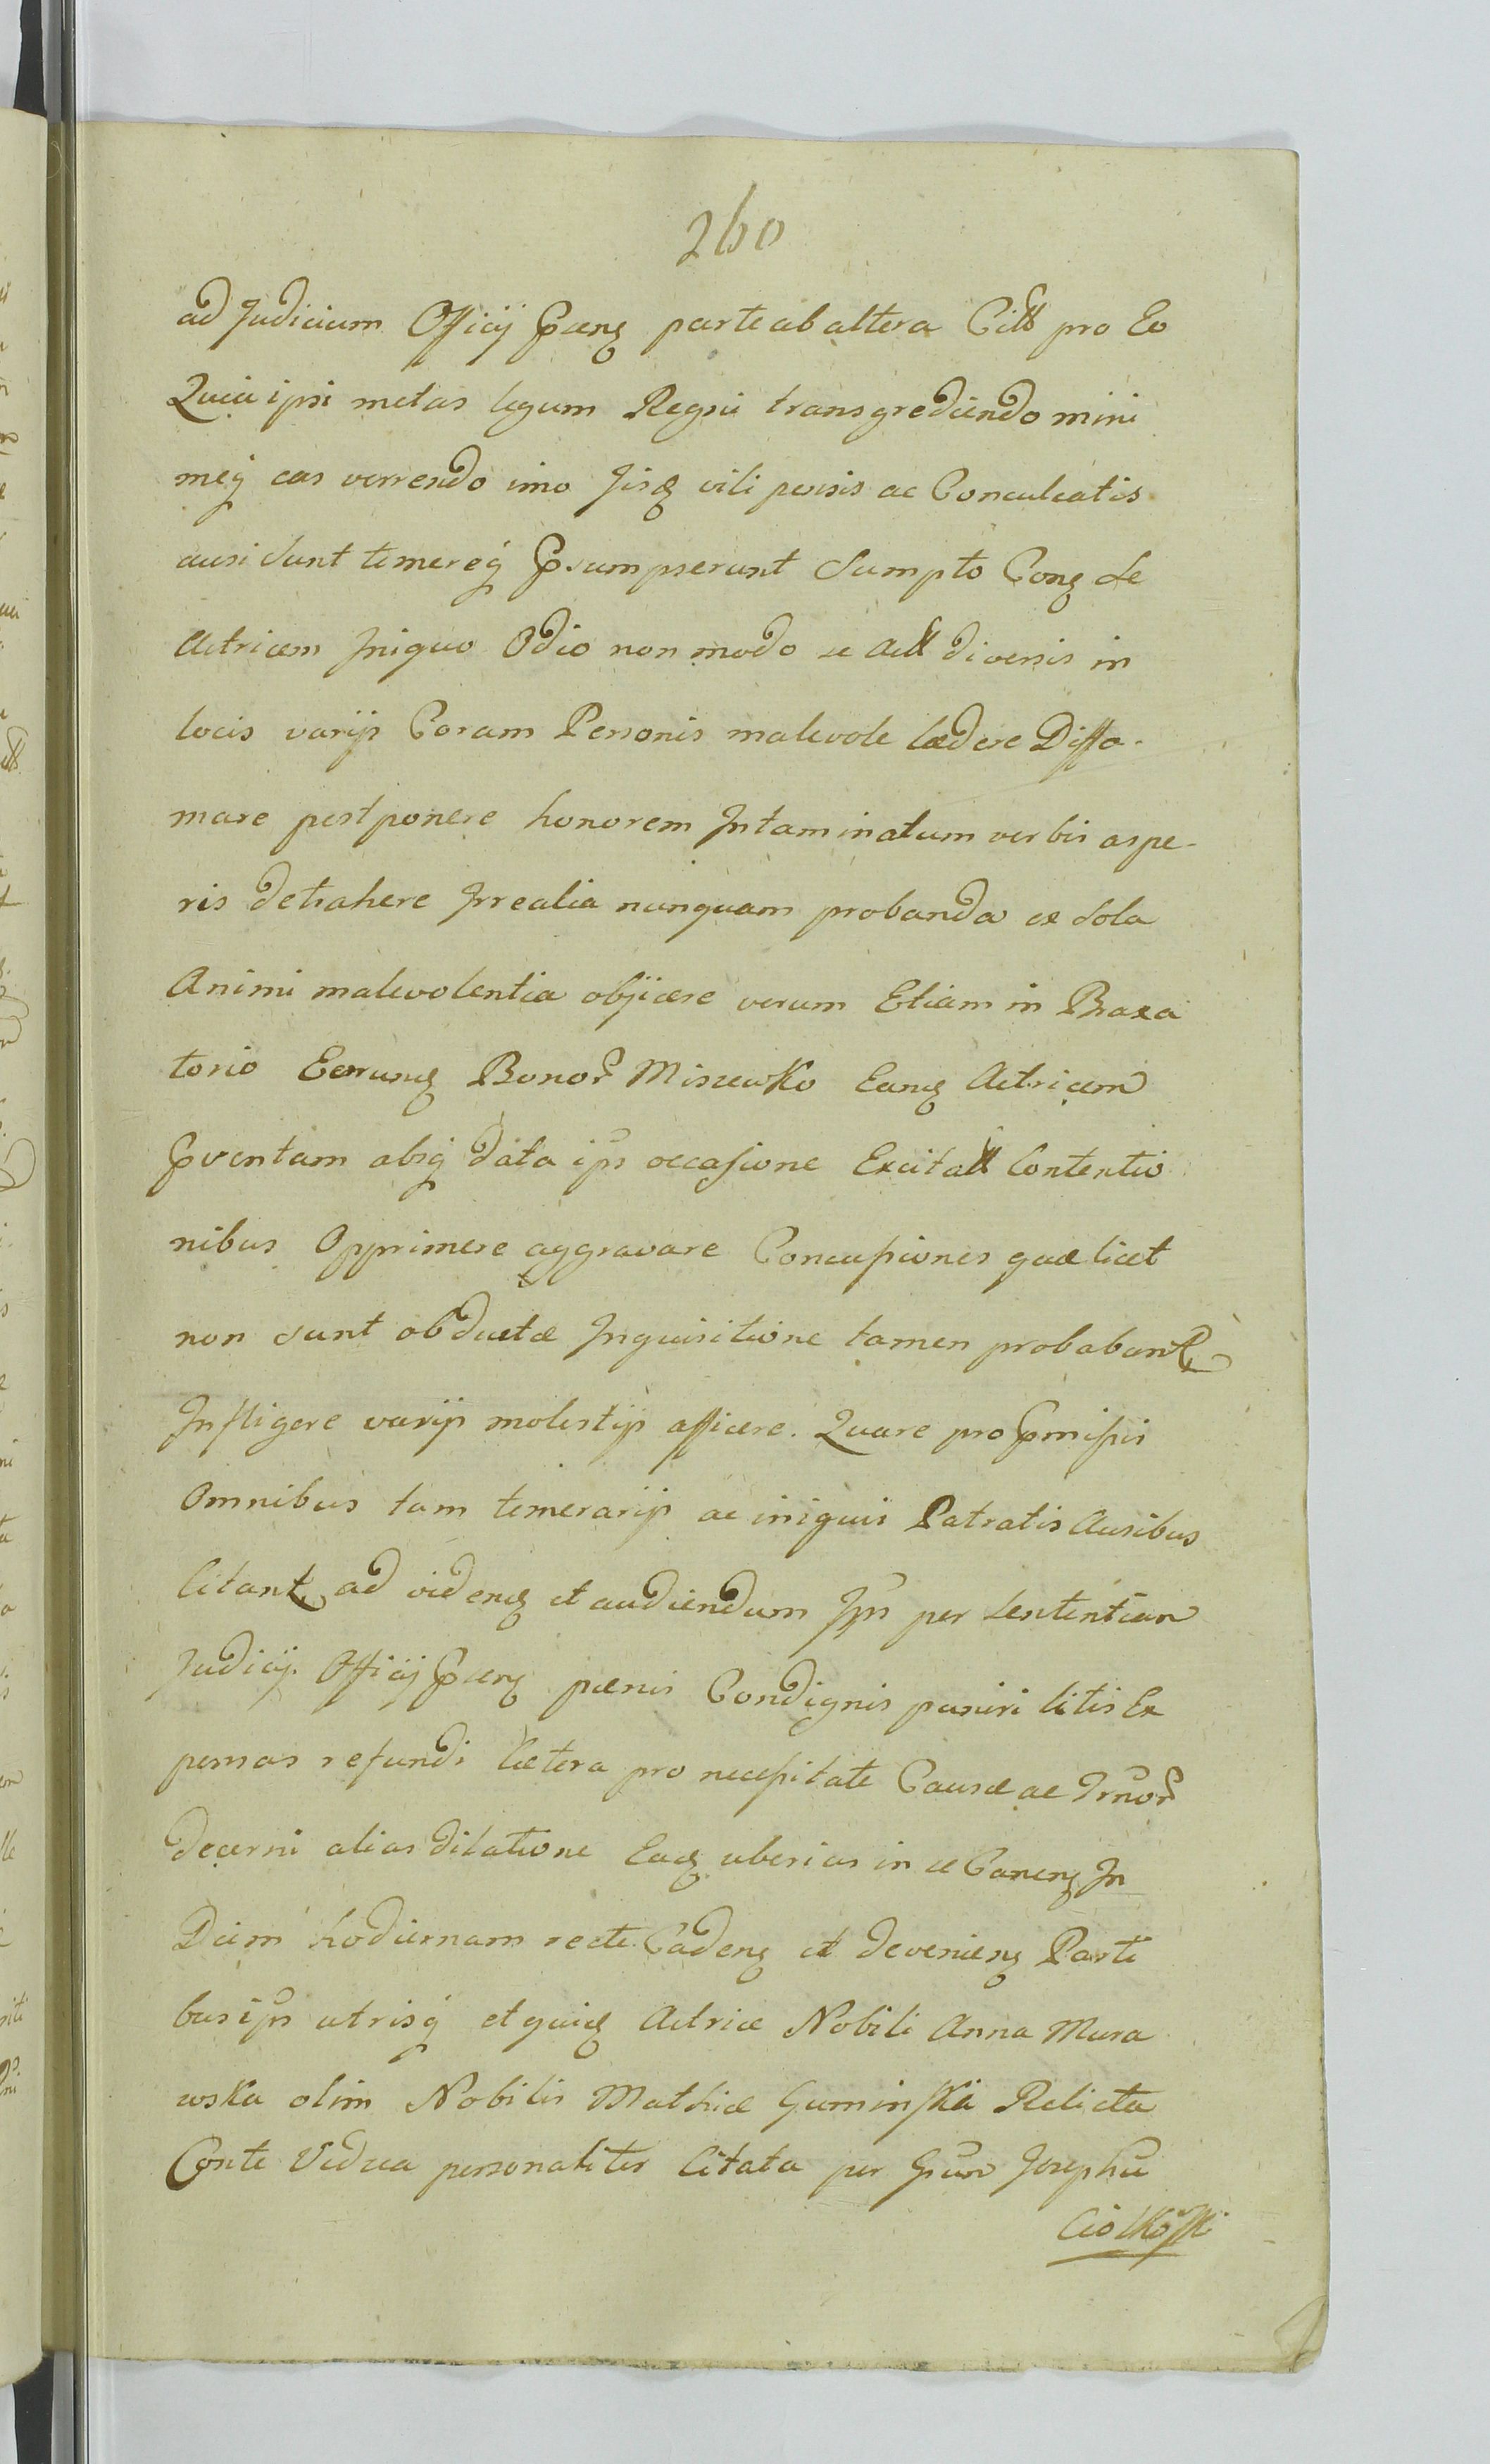 260
ad Judicium Officij Pñng parte ab altera Citt pro Eo
Quia ipsi metas legum Regni transgrediendo mini
meq̃ eas verrendo imo Jisq vili pensis ac Conculcatis
ausi sunt temereq̃ Psumpserunt Sumpto Cong se
Actricem Iniquo Odio non modo se Actt diversis in
locis varijs Coram Personis malevole lædere Diffa-
mare postponere honorem Intaminatum verbis aspe-
ris detrahere Irrealia nunquam probanda ex Sola
Animi malevolentia objicere verum Etiam in Braxa
torio Eorung Bonor Miszewko Eang Actricem
Pventam absq̃ data ips occasione Excitatt Contentio
nibus Opprimere aggravare Concussiones quæ licet
non sunt obductæ Inquisitione tamen probabunt
Infligere varijs molestijs afficere. Quare pro Pmissis
Omnibus tam temerarijs ac iniquis Patratis Ausibus
Citant ad videng et audiendum Ips per Sententiam
Judicij Officij Pñng pænis Condignis puniri litis Ex
pensas refundi Cætera pro necessitate Causæ ac Irnor
decerni alias dilatione Eaq uberius in se Caneng In
Diem hodiernam recte Cadeng et devenieng Parti
bus ips utrisq̃ et quiq Actrice Nobili Anna Mura
wska olim Nobilis Mathiæ Guminski Relicta
Conte Vidua personaliter Citata per Gsum Josephū
Ciołkoski